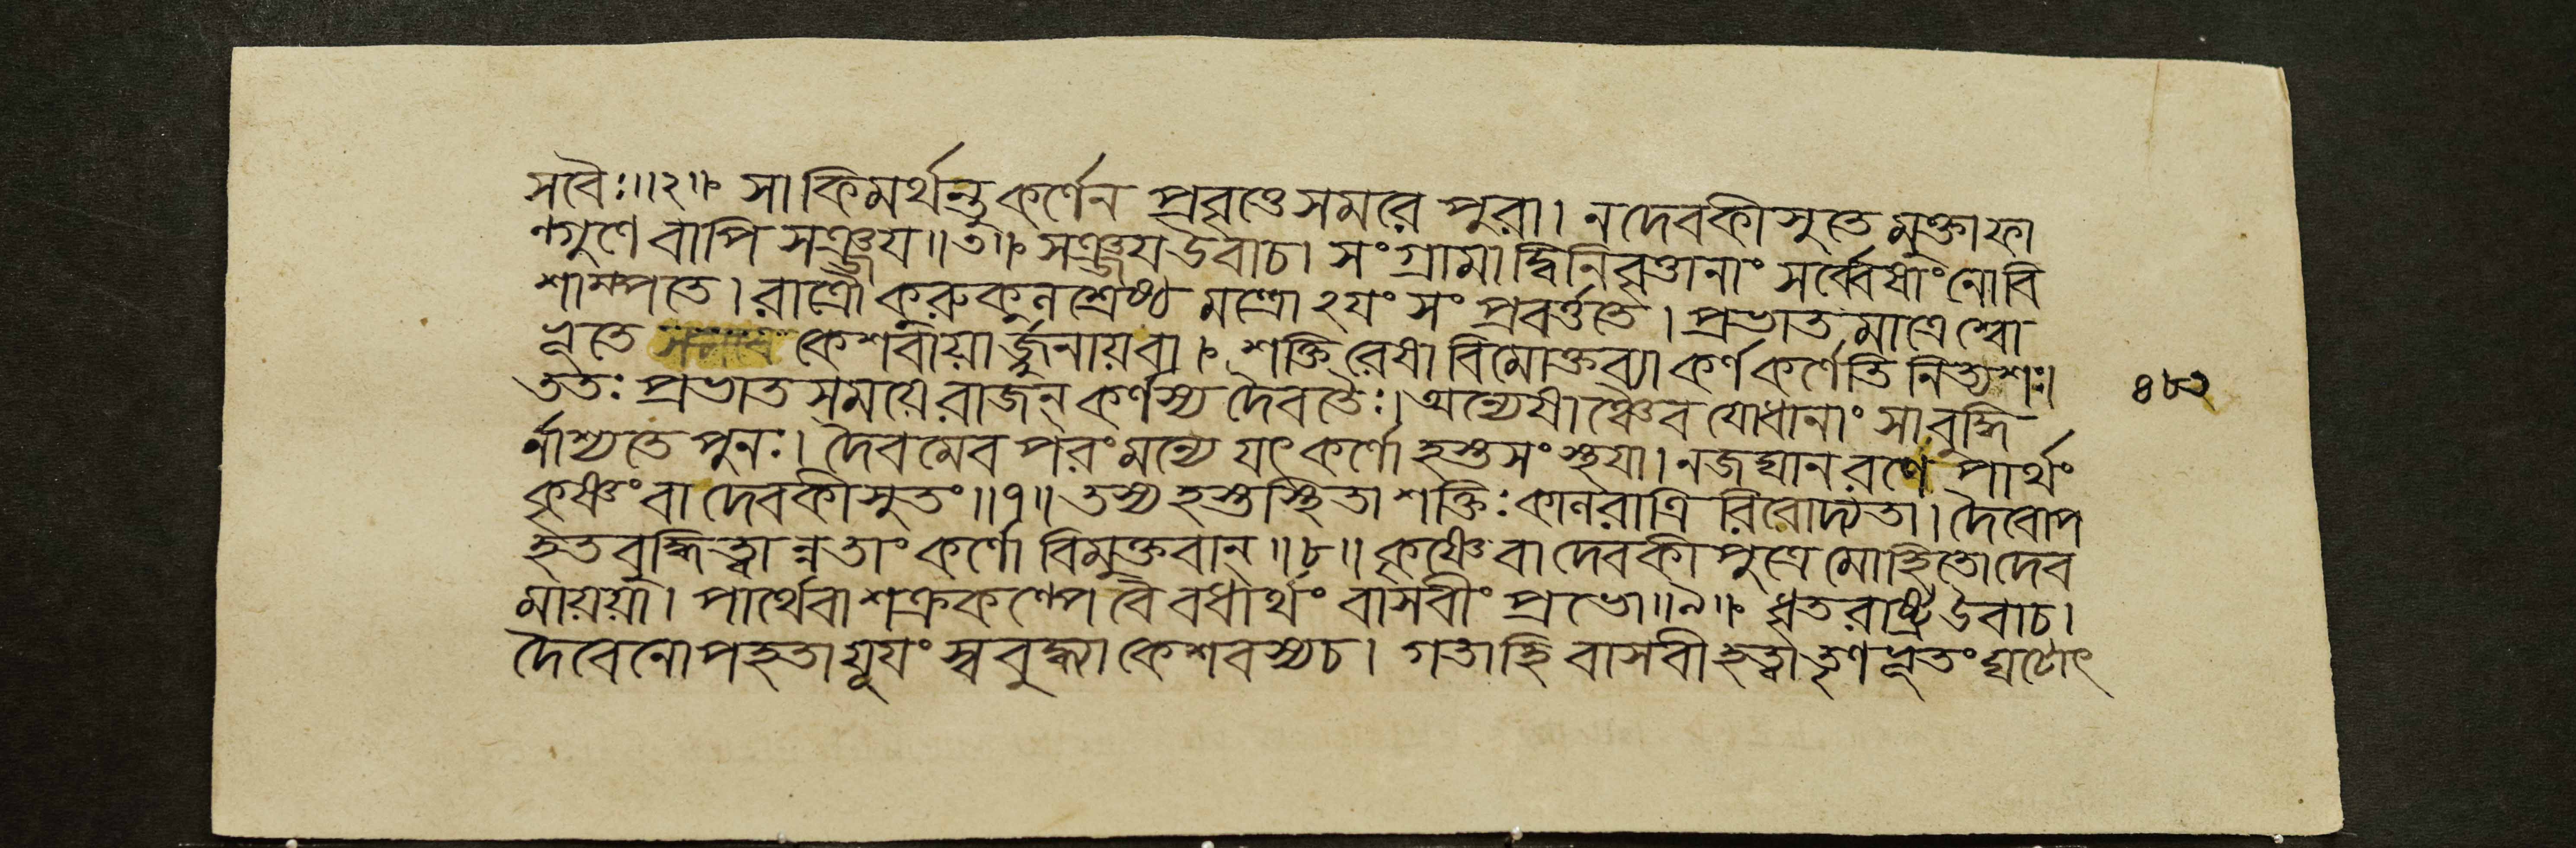 সবৈঃ॥২॥ সা কিমর্থন্তু কর্ণেন প্রবৃত্তে সমরে পুরা। ন দেবকীসুতে মুক্তা ফা
ল্গুণে বাপি সঞ্জয॥৩॥ সঞ্জয উবাচ। সংগ্রামাদ্বিনিবৃত্তানাং সর্ব্বেষাং নো বি
শাম্পতে। রাত্রৌ কুরুকুলশ্রেষ্ঠ মন্ত্রোঽযং সংপ্রবর্ত্ততে। প্রভাতমাত্রে শ্বো
ভূতে কেশবাযার্জ্জুনায বা। শক্তিরেষা বিমোক্তব্যা কর্ণ কর্ণেতি নিত্যশঃ।
ততঃ প্রভাতসময়ে রাজন্ কর্ণস্য দৈবতৈঃ। অন্যেষাঞ্চৈব যোধানাং সা বুদ্ধি
র্নাশ্যতে পুনঃ। দৈবমেব পরং মন্যে যৎ কর্ণো হস্তসংস্থযা। ন জঘান রণে পার্থং
কৃষ্ণং বা দেবকীসুতং॥৭॥ তস্য হস্তস্থিতা শক্তিঃ কালরাত্রিরিবোদ্যতা। দৈবোপ
হতবুদ্ধিত্বান্ন তাং কর্ণো বিমুক্তবান্॥৮॥ কৃষ্ণে বা দেবকীপুত্রে মোহিতো দেব
মায়যা। পার্থে বা শক্রকল্পে বৈ বধার্থং বাসবীং প্রভো॥৯॥ ধৃতরাষ্ট্র উবাচ।
দৈবেনোপহতা যূযং স্ববুদ্ধ্যা কেশবস্য চ। গতা হি বাসবী হত্বা তৃণভূতং ঘটোৎ
৪৮২